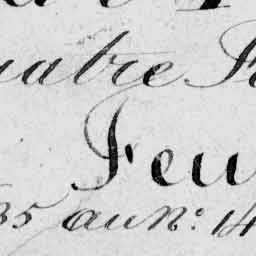 uatre F
Feu
35 au No: 14